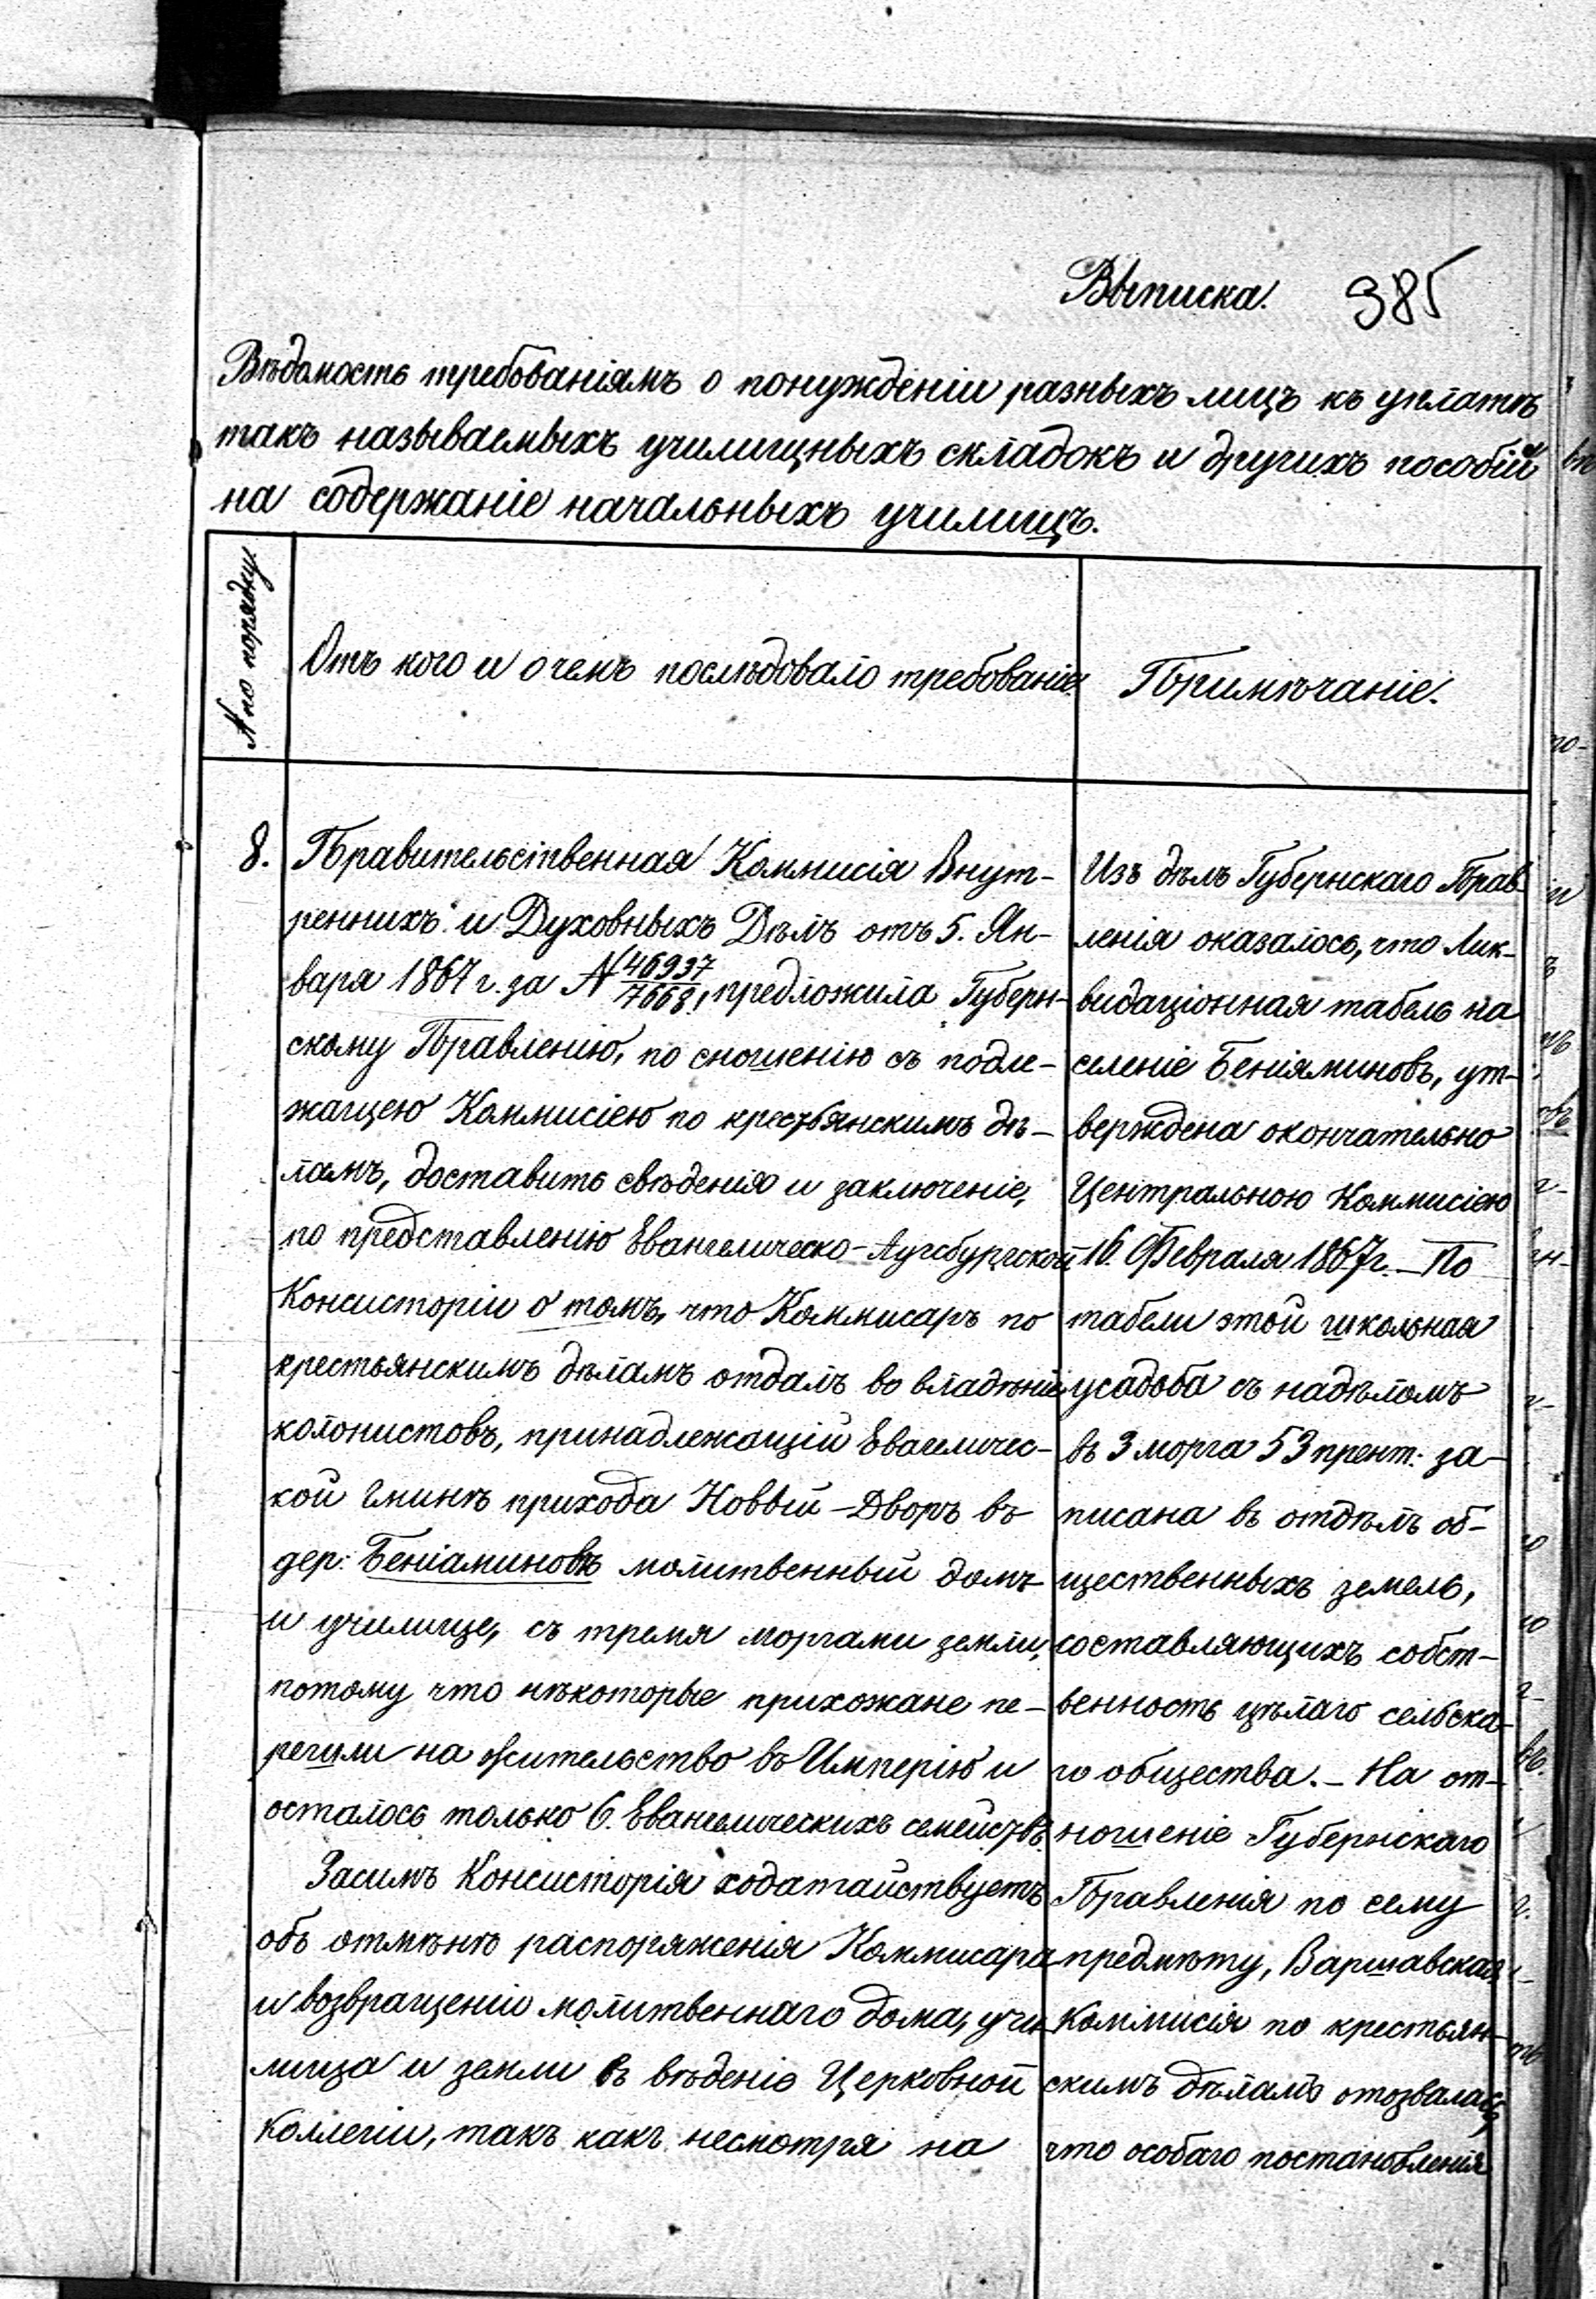 Выписка. 385
Вѣдомость требованіямъ о понужденіи разныхъ лицъ къ уплатѣ
такъ называемыхъ училищныхъ складокъ и другихъ пособій
на содержаніе начальныхъ училищъ.
№ по порядку
Отъ кого и о чемъ послѣдовало требованіе.
Примѣчаніе.
8.
Правительственная Коммисія Внут-
реннихъ и Духовныхъ Дѣлъ отъ 5. Ян-
варя 1867 г. за № 46937/7668, предложила Губерн-
скому Правленію, по сношенію съ подле-
жащею Коммисіею по крестьянскимъ дѣ-
ламъ, доставить свѣденія и заключеніе,
по представленію Евангелическо-Аугсбургской
Консисторіи о томъ, что Коммисаръ по
крестьянскимъ дѣламъ отдалъ во владѣніе
колонистовъ, принадлежащій Евагеличес-
кой гминѣ прихода Новый-Дворъ въ
дер: Беніаминовѣ молитвенный домъ
и училище, съ тремя моргами земли,
потому что нѣкоторые прихожане пе-
решли на жительство въ Имперію и
осталось только 6. Евангелическихъ семействъ.
Засимъ Консисторія ходатайствуетъ
объ отмѣнѣ распоряженія Коммисара
и возвращеніи молитвеннаго дома, учи-
лища и земли въ вѣденіе Церковной
Коллегіи, такъ какъ несмотря на
Изъ дѣлъ Губернскаго Прав-
ленія оказалось, что Лик-
видаціонная табель на
селеніе Беніяминовъ, ут-
верждена окончательно
Центральною Коммисіею
16. Февраля 1867 г. — По
табели этой школьная
усадьба съ надѣломъ
въ 3 морга 53 прент: за-
писана въ отдѣлъ об-
щественныхъ земель,
составляющихъ собст-
венность цѣлаго сельска-
го общества. — На от-
ношеніе Губернскаго
Правленія по сему
предмѣту, Варшавская
Коммисія по крестьян-
скимъ дѣламъ отозвалась,
что особаго постановленія